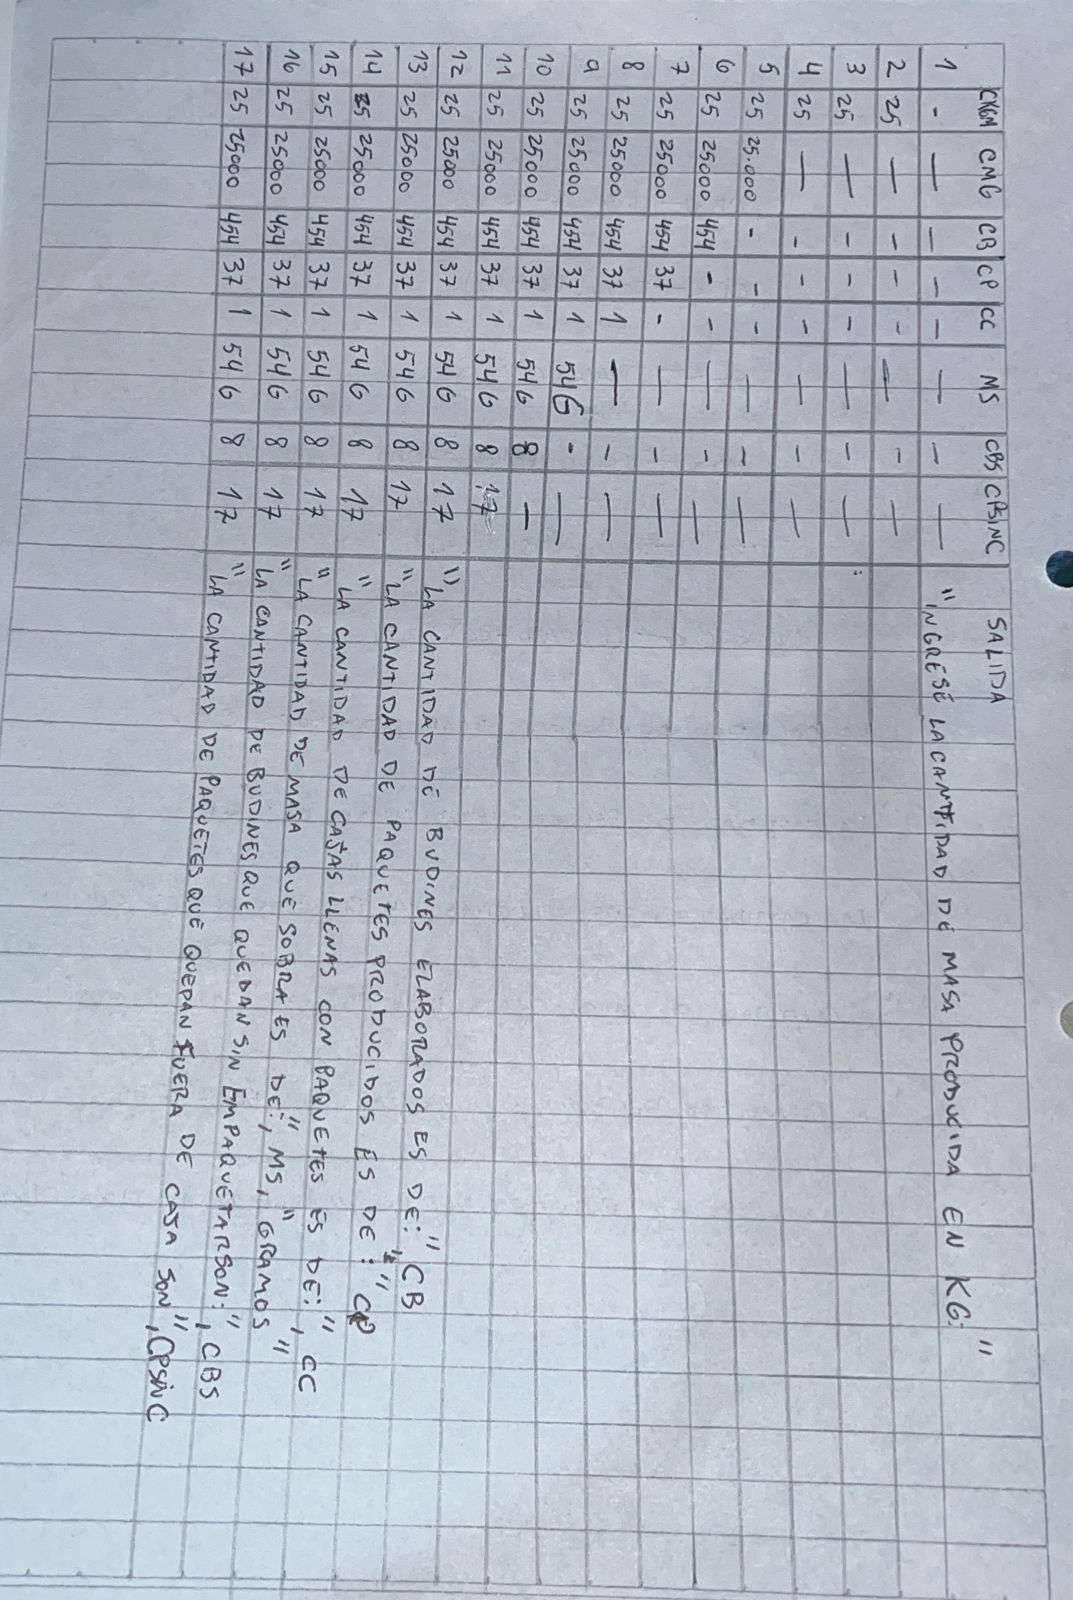 CKGM CMG CB CP CC MS CBS CPSINC SALIDA
1 - — — — — — — — "INGRESE LA CANTIDAD DE MASA PRODUCIDA EN KG: "
2 25 — — — — — — —
3 25 — — — — — — —
4 25 — — — — — — —
5 25 25.000 - - - — - —
6 25 25000 454 - - — - —
7 25 25000 454 37 - — - —
8 25 25000 454 37 1 — - —
9 25 25000 454 37 1 546 - —
10 25 25000 454 37 1 546 8 —
11 25 25000 454 37 1 546 8 17
12 25 25000 454 37 1 546 8 17 "LA CANTIDAD DE BUDINES ELABORADOS ES DE: " CB
13 25 25000 454 37 1 546 8 17 "LA CANTIDAD DE PAQUETES PRODUCIDOS ES DE: ", CP
14 25 25000 454 37 1 546 8 17 "LA CANTIDAD DE CAJAS LLENAS CON PAQUETES ES DE: ", CC
15 25 25000 454 37 1 546 8 17 "LA CANTIDAD DE MASA QUE SOBRA ES DE: ", MS, "GRAMOS"
16 25 25000 454 37 1 546 8 17 "LA CANTIDAD DE BUDINES QUE QUEDAN SIN EMPAQUETAR SON: ", CBS
17 25 25000 454 37 1 546 8 17 "LA CANTIDAD DE PAQUETES QUE QUEDAN FUERA DE CAJA SON ", CPSINC